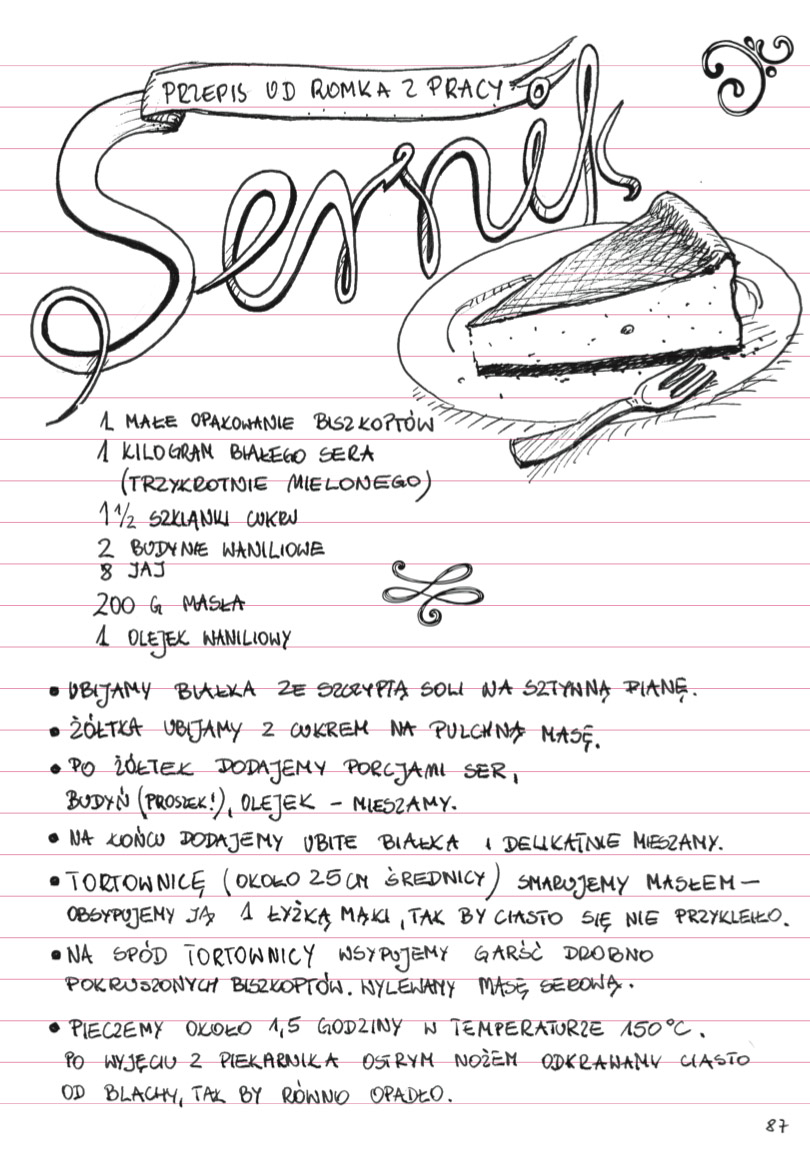 PRZEPIS OD ROMKA Z PRACY
Sernik
1 MAŁE OPAKOWANIE BISZKOPTÓW
1 KILOGRAM BIAŁEGO SERA
(TRZYKROTNIE MIELONEGO)
1 1/2 SZKLANKI CUKRU
2 BUDYNIE WANILIOWE
8 JAJ
200 G MASŁA
1 OLEJEK WANILIOWY
• UBIJAMY BIAŁKA ZE SZCZYPTĄ SOLI NA SZTYNNĄ PIANĘ.
• ŻÓŁTKA UBIJAMY Z CUKREM NA PULCHNĄ MASĘ.
• PO ŻÓŁTEK DODAJEMY PORCJAMI SER,
BUDYŃ (PROSZEK!), OLEJEK – MIESZAMY.
• NA KOŃCU DODAJEMY UBITE BIAŁKA I DELIKATNIE MIESZAMY.
• TORTOWNICĘ (OKOŁO 25 CM ŚREDNICY) SMARUJEMY MASŁEM –
OBSYPUJEMY JĄ 1 ŁYŻKĄ MĄKI, TAK BY CIASTO SIĘ NIE PRZYKLEIŁO.
• NA SPÓD TORTOWNICY WSYPUJEMY GARŚĆ DROBNO
POKRUSZONYCH BISZKOPTÓW. WYLEWAMY MASĘ SEROWĄ.
• PIECZEMY OKOŁO 1,5 GODZINY W TEMPERATURZE 150°C.
PO WYJĘCIU Z PIEKARNIKA OSTRYM NOŻEM ODKRAWAMY CIASTO
OD BLACHY, TAK BY RÓWNO OPADŁO.
87